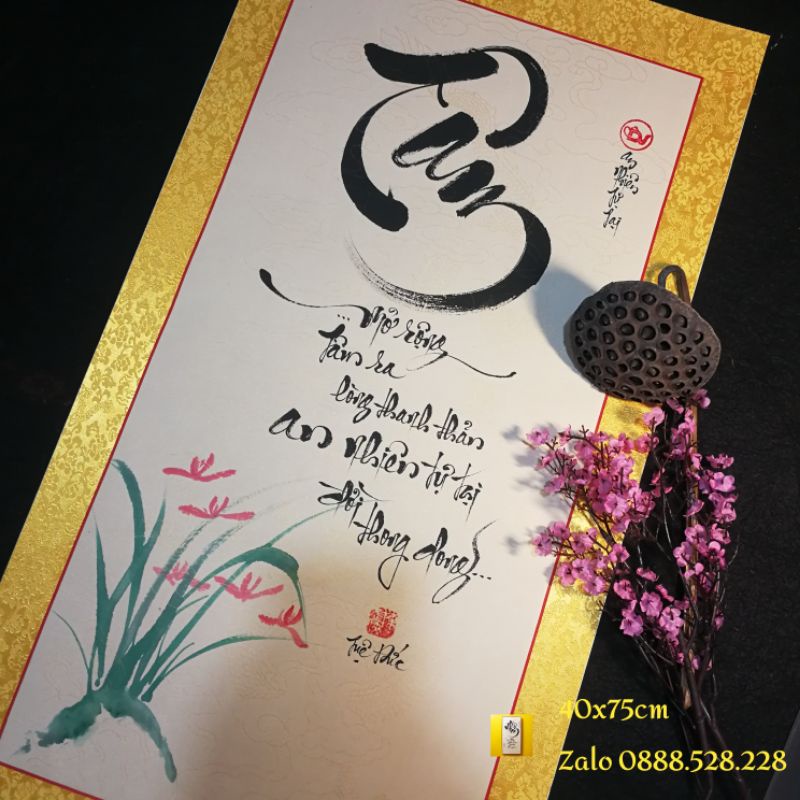 Tâm
an
nhiên
tự
tại
...mở rộng
tâm ra
lòng thanh thản
an nhiên tự tại
đời thong dong...
Tuệ Đức
40x75cm
Zalo 0888.528.228